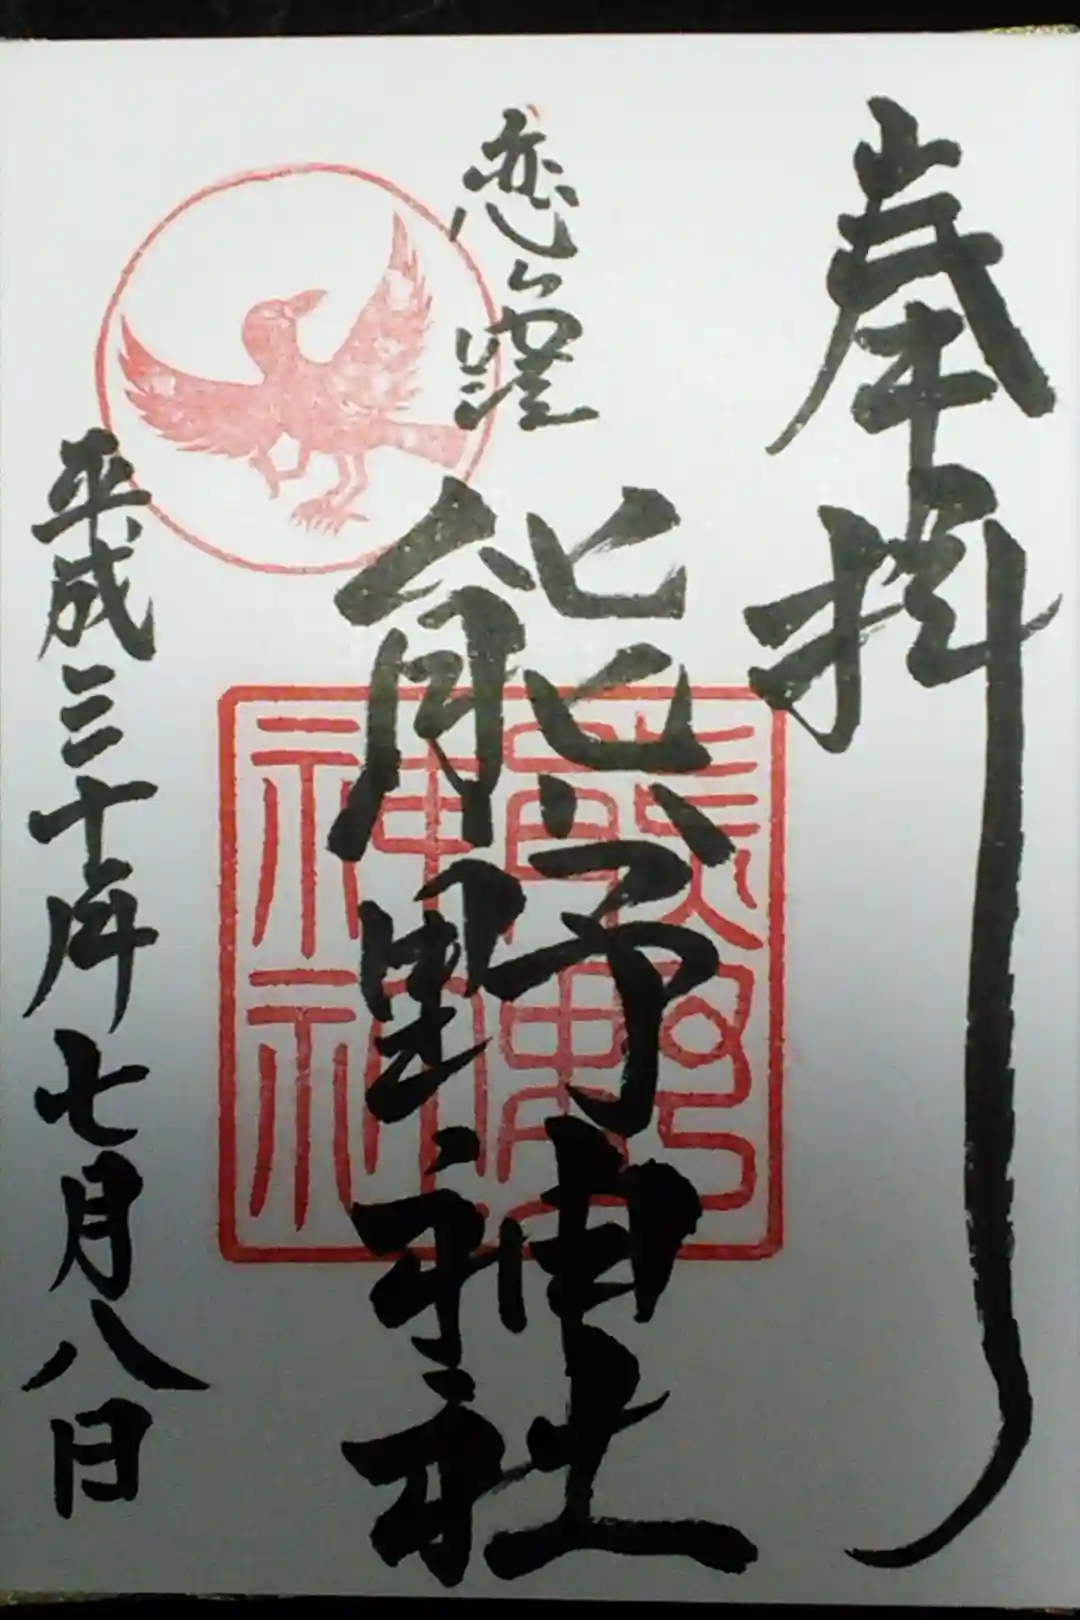 奉拝
恋ヶ窪
熊野神社
熊野神社
平成三十年七月八日